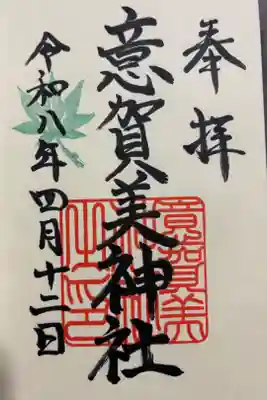 奉拝
意賀美神社
令和八年四月十二日
意賀美
神社
之印